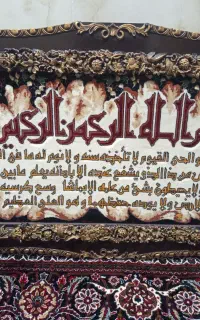 الله الرحمن الرحيم
الحي القيوم لا تأخذه سنه و لا نوم له ما في
من ذا الذي يشفع عنده الا باذنه يعلم ما بين
و لا يحيطون بشئ من علمه الا بما شا وسع كرسيه
و لا يوده حفظهما و هو العلي العظيم